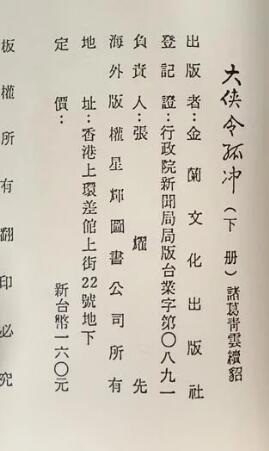 大俠令孤冲(下册)諸葛靑雲續貂
出版者：金蘭文化出版社
登記證：行政院新聞局局版台業字第〇八九一
負責人：張耀先
海外版權星輝圖書公司所有
地址：香港上環差館上街22號地下
定價：新台幣一六〇元
板權所有翻印必究